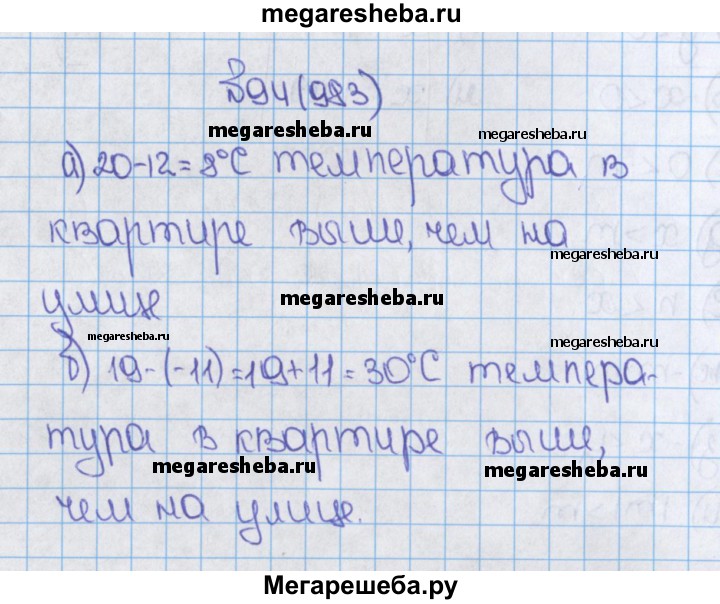 megaresheba.ru
№94(983)
megaresheba.ru
megaresheba.ru
а) 20-12=8°C температура в
квартире выше, чем на
megaresheba.ru
улице
megaresheba.ru
megaresheba.ru
б) 19-(-11)=19+11=30°C темпера-
тура в квартире выше,
megaresheba.ru
megaresheba.ru
чем на улице.
Мегарешеба.ру